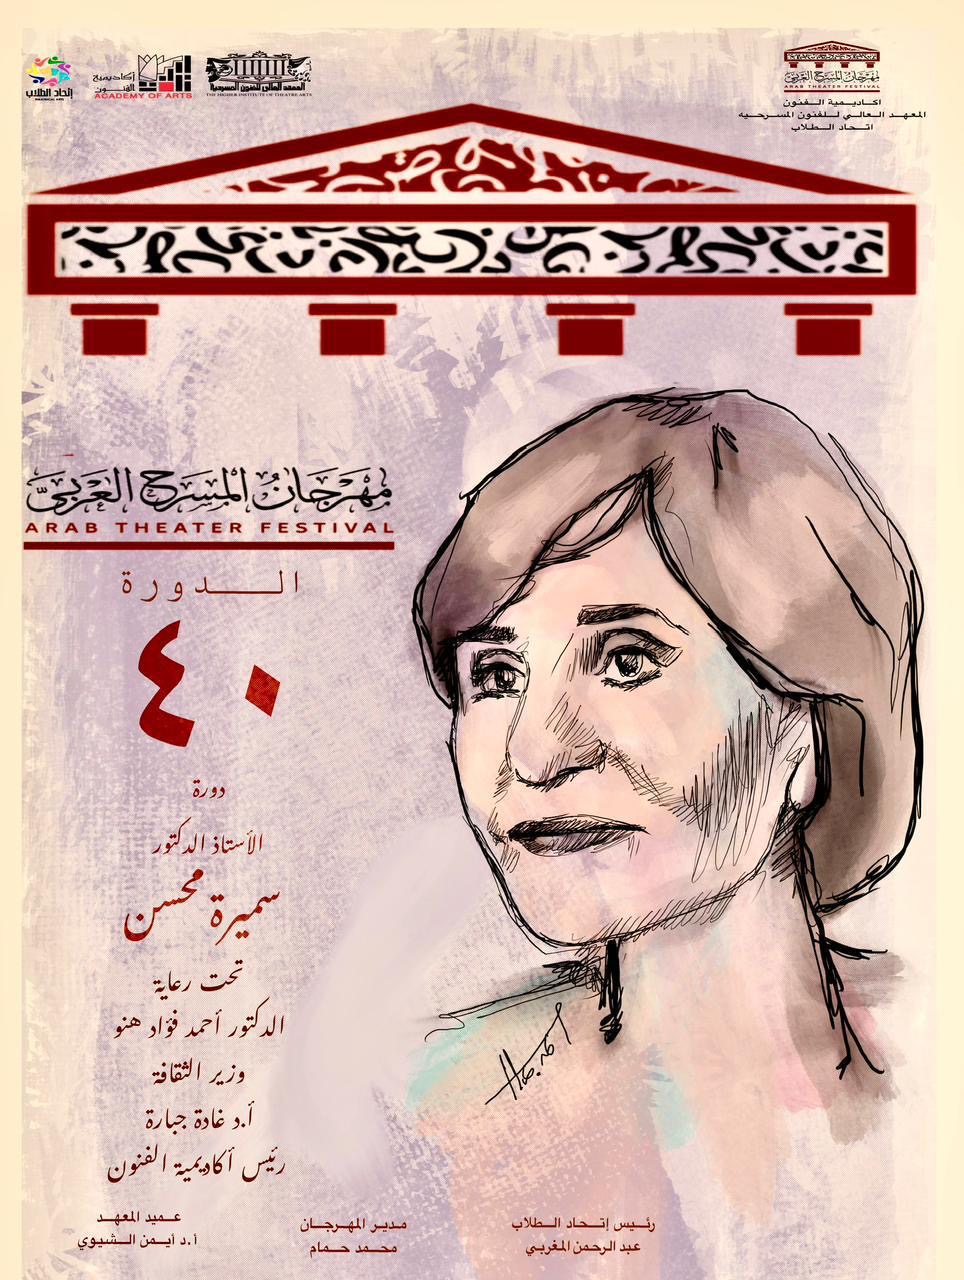 إتحاد الطلاب
أكاديمية
الفنون
ACADEMY OF ARTS
المعهد العالي للفنون المسرحية
THE HIGHER INSTITUTE OF THEATRE ARTS
مهرجان المسرح العربي
ARAB THEATER FESTIVAL
اكاديمية الفنون
المعهد العالي للفنون المسرحيه
اتحاد الطلاب
مهرجان المسرح العربي
ARAB THEATER FESTIVAL
الدورة
٤٠
دورة
الأستاذ الدكتور
سميرة محسن
تحت رعاية
الدكتور أحمد فؤاد هنو
وزير الثقافة
أ.د غادة جبارة
رئيس أكاديمية الفنون
رئيس إتحاد الطلاب
عبد الرحمن المغربي
مدير المهرجان
محمد حمام
عميد المعهد
أ.د أيمن الشيوي